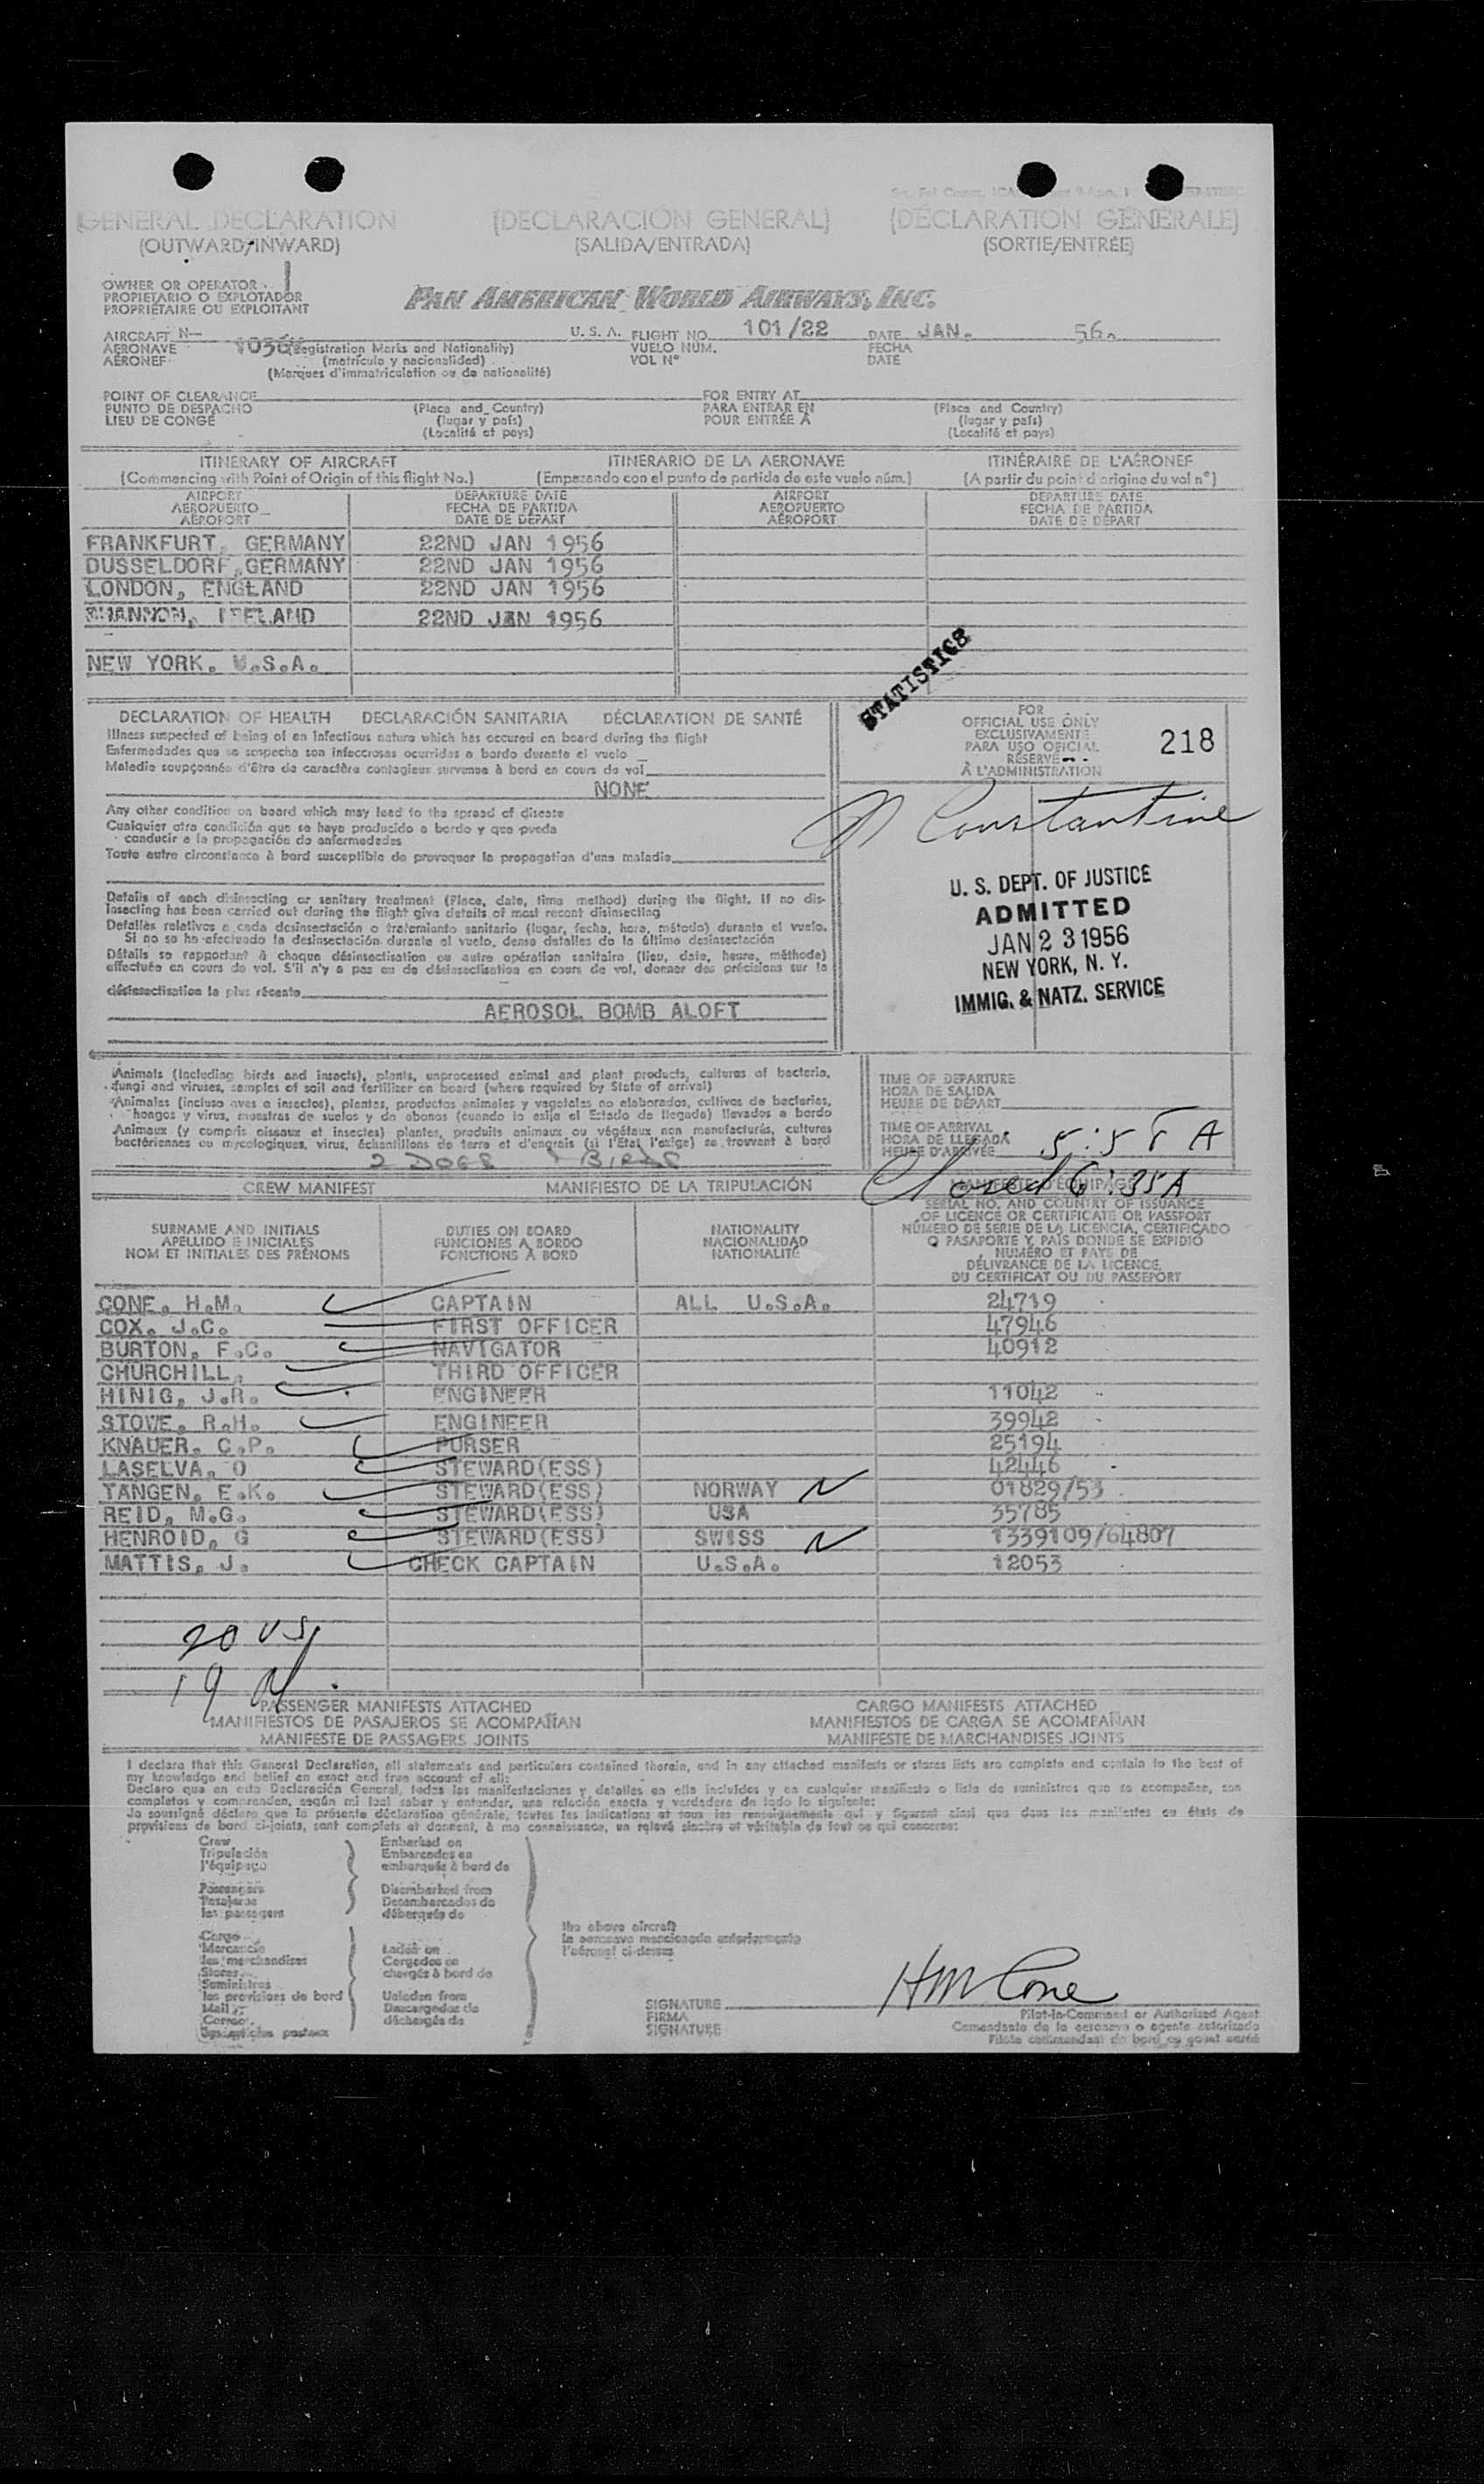 GENERAL DECLARATION (DECLARACIÓN GENERAL) (DÉCLARATION GÉNÉRALE)
(OUTWARD/INWARD) (SALIDA/ENTRADA) (SORTIE/ENTRÉE)
OWNER OR OPERATOR
PROPIETARIO O EXPLOTADOR
PROPRIÉTAIRE OU EXPLOITANT
PAN AMERICAN WORLD AIRWAYS, INC.
AIRCRAFT N— U. S. A. FLIGHT NO. 101/22 DATE JAN. 56.
AERONAVE (Registration Marks and Nationality) VUELO NÚM. FECHA
AÉRONEF (matrícula y nacionalidad) VOL Nº DATE
(Marques d'immatriculation ou de nationalité)
POINT OF CLEARANCE FOR ENTRY AT
PUNTO DE DESPACHO (Place and Country) PARA ENTRAR EN (Place and Country)
LIEU DE CONGÉ (lugar y país) POUR ENTRÉE À (lugar y país)
(Localité et pays) (Localité et pays)
ITINERARY OF AIRCRAFT ITINERARIO DE LA AERONAVE ITINÉRAIRE DE L'AÉRONEF
(Commencing with Point of Origin of this flight No.) (Empezando con el punto de partida de este vuelo núm.) (A partir du point d'origine du vol nº)
AIRPORT DEPARTURE DATE AIRPORT DEPARTURE DATE
AEROPUERTO FECHA DE PARTIDA AEROPUERTO FECHA DE PARTIDA
AÉROPORT DATE DE DÉPART AÉROPORT DATE DE DÉPART
FRANKFURT, GERMANY 22ND JAN 1956
DUSSELDORF, GERMANY 22ND JAN 1956
LONDON, ENGLAND 22ND JAN 1956
SHANNON, IRELAND 22ND JAN 1956
NEW YORK. U.S.A.
STATISTICS
DECLARATION OF HEALTH DECLARACIÓN SANITARIA DÉCLARATION DE SANTÉ
Illness suspected of being of an infectious nature which has occured on board during the flight
Enfermedades que se sospecha son infecciosas ocurridas a bordo durante el vuelo
Maladie soupçonnée d'être de caractère contagieux survenue à bord en cours de vol
NONE
Any other condition on board which may lead to the spread of disease
Cualquier otra condición que se haya producido a bordo y que pueda
conducir a la propagación de enfermedades
Toute autre circonstance à bord susceptible de provoquer la propagation d'une maladie
Details of each disinsecting or sanitary treatment (Place, date, time method) during the flight. If no dis-
insecting has been carried out during the flight give details of most recent disinsecting
Detalles relativos a cada desinsectación o tratamiento sanitario (lugar, fecha, hora, método) durante el vuelo.
Si no se ha efectuado la desinsectación durante el vuelo, dense detalles de la última desinsectación
Détails se rapportant à chaque désinsectisation ou autre opération sanitaire (lieu, date, heure, méthode)
effectuée en cours de vol. S'il n'y a pas eu de désinsectisation en cours de vol, donner des précisions sur la
désinsectisation la plus récente
AEROSOL BOMB ALOFT
FOR
OFFICIAL USE ONLY
EXCLUSIVAMENTE
PARA USO OFICIAL
RÉSERVÉ
À L'ADMINISTRATION
218
Constantine
U. S. DEPT. OF JUSTICE
ADMITTED
JAN 23 1956
NEW YORK, N. Y.
IMMIG. & NATZ. SERVICE
Animals (Including birds and insects), plants, unprocessed animal and plant products, cultures of bacteria,
fungi and viruses, samples of soil and fertilizer on board (where required by State of arrival)
Animales (incluso aves e insectos), plantas, productos animales y vegetales no elaborados, cultivos de bacterias,
hongos y virus, muestras de suelos y de abonos (cuando lo exija el Estado de llegada) llevados a bordo
Animaux (y compris oiseaux et insectes) plantes, produits animaux ou végétaux non manufacturés, cultures
bactériennes ou mycologiques, virus, échantillons de terre et d'engrais (si l'État l'exige) se trouvant à bord
2 DOGS BIRDS
TIME OF DEPARTURE
HORA DE SALIDA
HEURE DE DÉPART
TIME OF ARRIVAL
HORA DE LLEGADA
HEURE D'ARRIVÉE
5:55 A
Closed 6:35A
CREW MANIFEST MANIFIESTO DE LA TRIPULACIÓN MANIFESTE D'ÉQUIPAGE
SURNAME AND INITIALS
APELLIDO E INICIALES
NOM ET INITIALES DES PRÉNOMS
DUTIES ON BOARD
FUNCIONES A BORDO
FONCTIONS À BORD
NATIONALITY
NACIONALIDAD
NATIONALITÉ
SERIAL NO. AND COUNTRY OF ISSUANCE
OF LICENCE OR CERTIFICATE OR PASSPORT
NÚMERO DE SERIE DE LA LICENCIA, CERTIFICADO
O PASAPORTE Y PAÍS DONDE SE EXPIDIÓ
NUMÉRO ET PAYS DE
DÉLIVRANCE DE LA LICENCE,
DU CERTIFICAT OU DU PASSEPORT
CONE, H.M. CAPTAIN ALL U.S.A. 24719
COX, J.C. FIRST OFFICER 47946
BURTON, F.C. NAVIGATOR 40912
CHURCHILL, THIRD OFFICER
HINIG, J.R. ENGINEER 11042
STOWE, R.H. ENGINEER 39942
KNAUER, C.P. PURSER 25194
LASELVA, O STEWARD(ESS) 42446
TANGEN, E.K. STEWARD(ESS) NORWAY 01829/53
REID, M.G. STEWARD(ESS) USA 35785
HENROID, G STEWARD(ESS) SWISS 1339109/64807
MATTIS, J. CHECK CAPTAIN U.S.A. 12053
20 US
19
PASSENGER MANIFESTS ATTACHED CARGO MANIFESTS ATTACHED
MANIFIESTOS DE PASAJEROS SE ACOMPAÑAN MANIFIESTOS DE CARGA SE ACOMPAÑAN
MANIFESTE DE PASSAGERS JOINTS MANIFESTE DE MARCHANDISES JOINTS
I declare that this General Declaration, all statements and particulars contained therein, and in any attached manifests or stores lists are complete and contain to the best of
my knowledge and belief an exact and true account of all:
Declaro que en esta Declaración General, todas las manifestaciones y detalles en ella incluidos y en cualquier manifiesto o lista de suministros que se acompañen, son
completos y comprenden, según mi leal saber y entender, una relación exacta y verdadera de todo lo siguiente:
Je soussigné déclare que la présente déclaration générale, toutes les indications et tous les renseignements qui y figurent ainsi que dans les manifestes ou états de
provisions de bord ci-joints, sont complets et donnent, à ma connaissance, un relevé sincère et véritable de tout ce qui concerne:
Crew
Tripulación
l'équipage
Embarked on
Embarcados en
embarqués à bord de
Passengers
Pasajeros
les passagers
Disembarked from
Desembarcados de
débarqués de
the above aircraft
la aeronave mencionada anteriormente
l'aéronef ci-dessus
Cargo
Mercancía
les marchandises
Stores
Suministros
les provisions de bord
Mail
Correo
Laden on
Cargados en
chargés à bord de
Unladen from
Descargados de
déchargés de
SIGNATURE
FIRMA
SIGNATURE
HM Cone
Pilot-in-Command or Authorized Agent
Comandante de la aeronave o agente autorizado